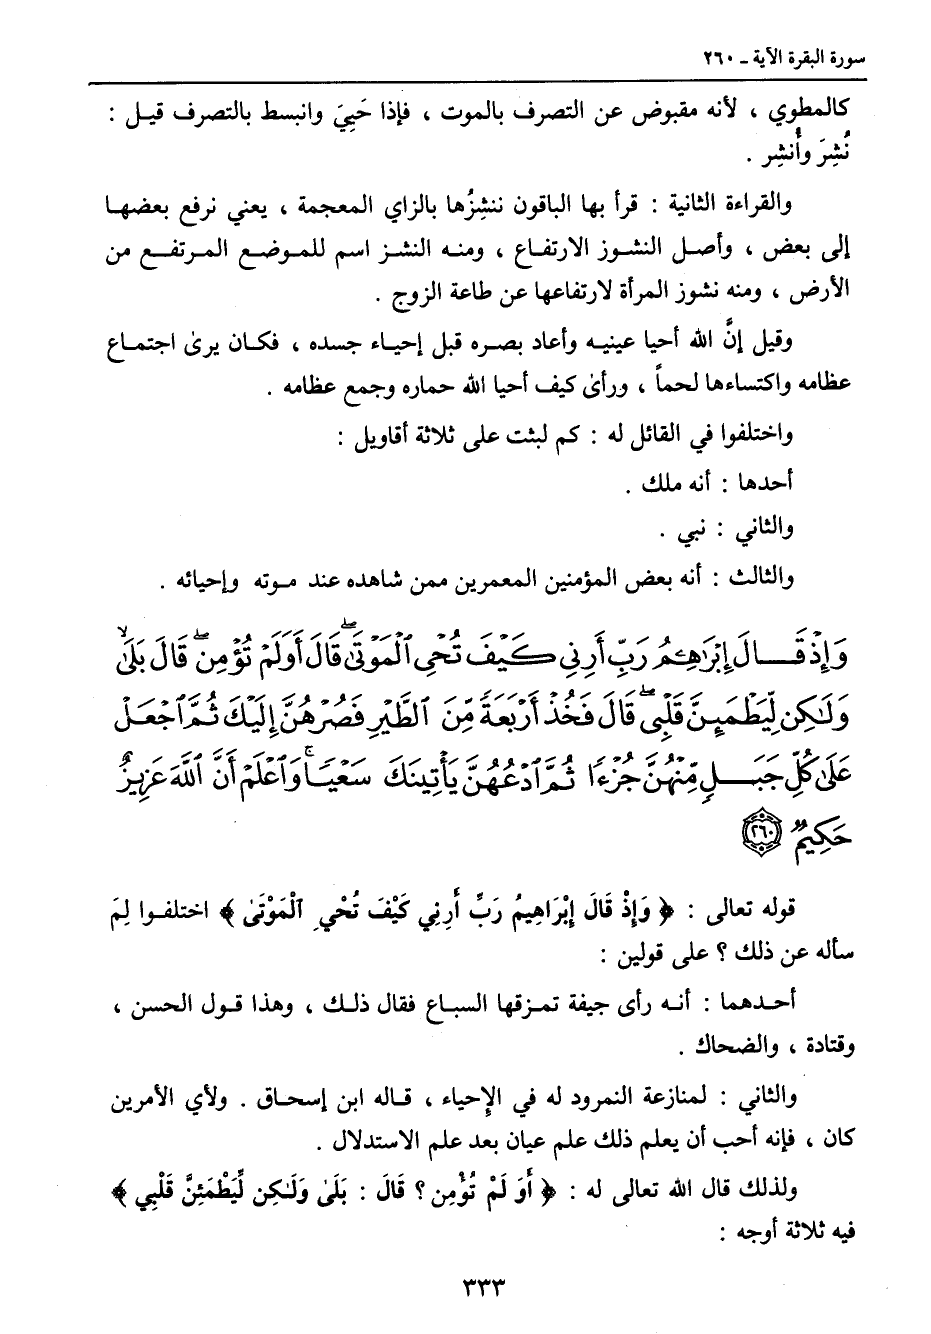 سورة البقرة الآية ـ ٢٦٠
كالمطوي ، لأنه مقبوض عن التصرف بالموت ، فإذا حَيِيَ وانبسط بالتصرف قيل :
نُشِرَ وأُنشِر .
والقراءة الثانية : قرأ بها الباقون ننشِزُها بالزاي المعجمة ، يعني نرفع بعضها
إلى بعض ، وأصل النشوز الارتفاع ، ومنه النشز اسم للموضع المرتفع من
الأرض ، ومنه نشوز المرأة لارتفاعها عن طاعة الزوج .
وقيل إنَّ الله أحيا عينيه وأعاد بصره قبل إحياء جسده ، فكان يرىٰ اجتماع
عظامه واكتساءها لحماً ، ورأىٰ كيف أحيا الله حماره وجمع عظامه .
واختلفوا في القائل له : كم لبثت على ثلاثة أقاويل :
أحدها : أنه ملك .
والثاني : نبي .
والثالث : أنه بعض المؤمنين المعمرين ممن شاهده عند موته وإحيائه .
وَإِذْ قَالَ إِبْرَٰهِـۧمُ رَبِّ أَرِنِي كَيْفَ تُحْيِ ٱلْمَوْتَىٰۖ قَالَ أَوَلَمْ تُؤْمِنۖ قَالَ بَلَىٰ
وَلَـٰكِن لِّيَطْمَئِنَّ قَلْبِيۖ قَالَ فَخُذْ أَرْبَعَةً مِّنَ ٱلطَّيْرِ فَصُرْهُنَّ إِلَيْكَ ثُمَّ ٱجْعَلْ
عَلَىٰ كُلِّ جَبَلٍ مِّنْهُنَّ جُزْءًا ثُمَّ ٱدْعُهُنَّ يَأْتِينَكَ سَعْيًاۚ وَٱعْلَمْ أَنَّ ٱللَّهَ عَزِيزٌ
حَكِيمٌ ٢٦٠
قوله تعالى : ﴿ وَإِذْ قَالَ إِبْرَاهِيمُ رَبِّ أَرِنِي كَيْفَ تُحْيِ الْمَوْتَىٰ ﴾ اختلفوا لِمَ
سأله عن ذلك ؟ على قولين :
أحدهما : أنه رأى جيفة تمزقها السباع فقال ذلك ، وهذا قول الحسن ،
وقتادة ، والضحاك .
والثاني : لمنازعة النمرود له في الإحياء ، قاله ابن إسحاق . ولأي الأمرين
كان ، فإنه أحب أن يعلم ذلك علم عيان بعد علم الاستدلال .
ولذلك قال الله تعالى له : ﴿ أَوَ لَمْ تُؤْمِن ؟ قَالَ : بَلَىٰ وَلَـٰكِن لِّيَطْمَئِنَّ قَلْبِي ﴾
فيه ثلاثة أوجه :
٣٣٣